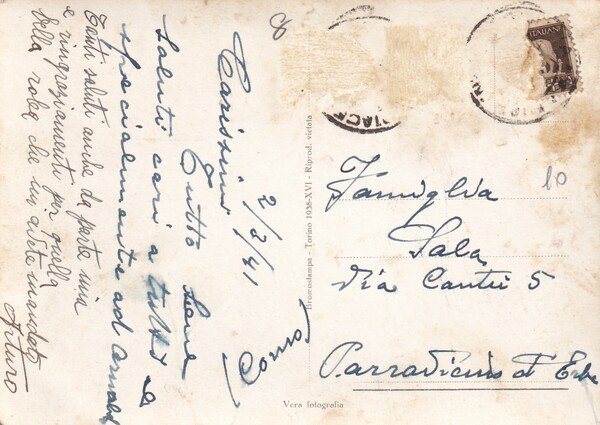 2/3/41
Carissimi
Tutto bene
saluti cari a tutti e
specialmente ad Arnaldo
Tanti saluti anche da parte mia
e ringraziamenti per quella
della roba che mi avete mandato
Arturo
Bromostampa - Torino 1938-XVI - Riprod. vietata
Vera fotografia
ITALIANE
PIACE
10
Famiglia
Sala
Via Cantù 5
Parravicino d'Erba